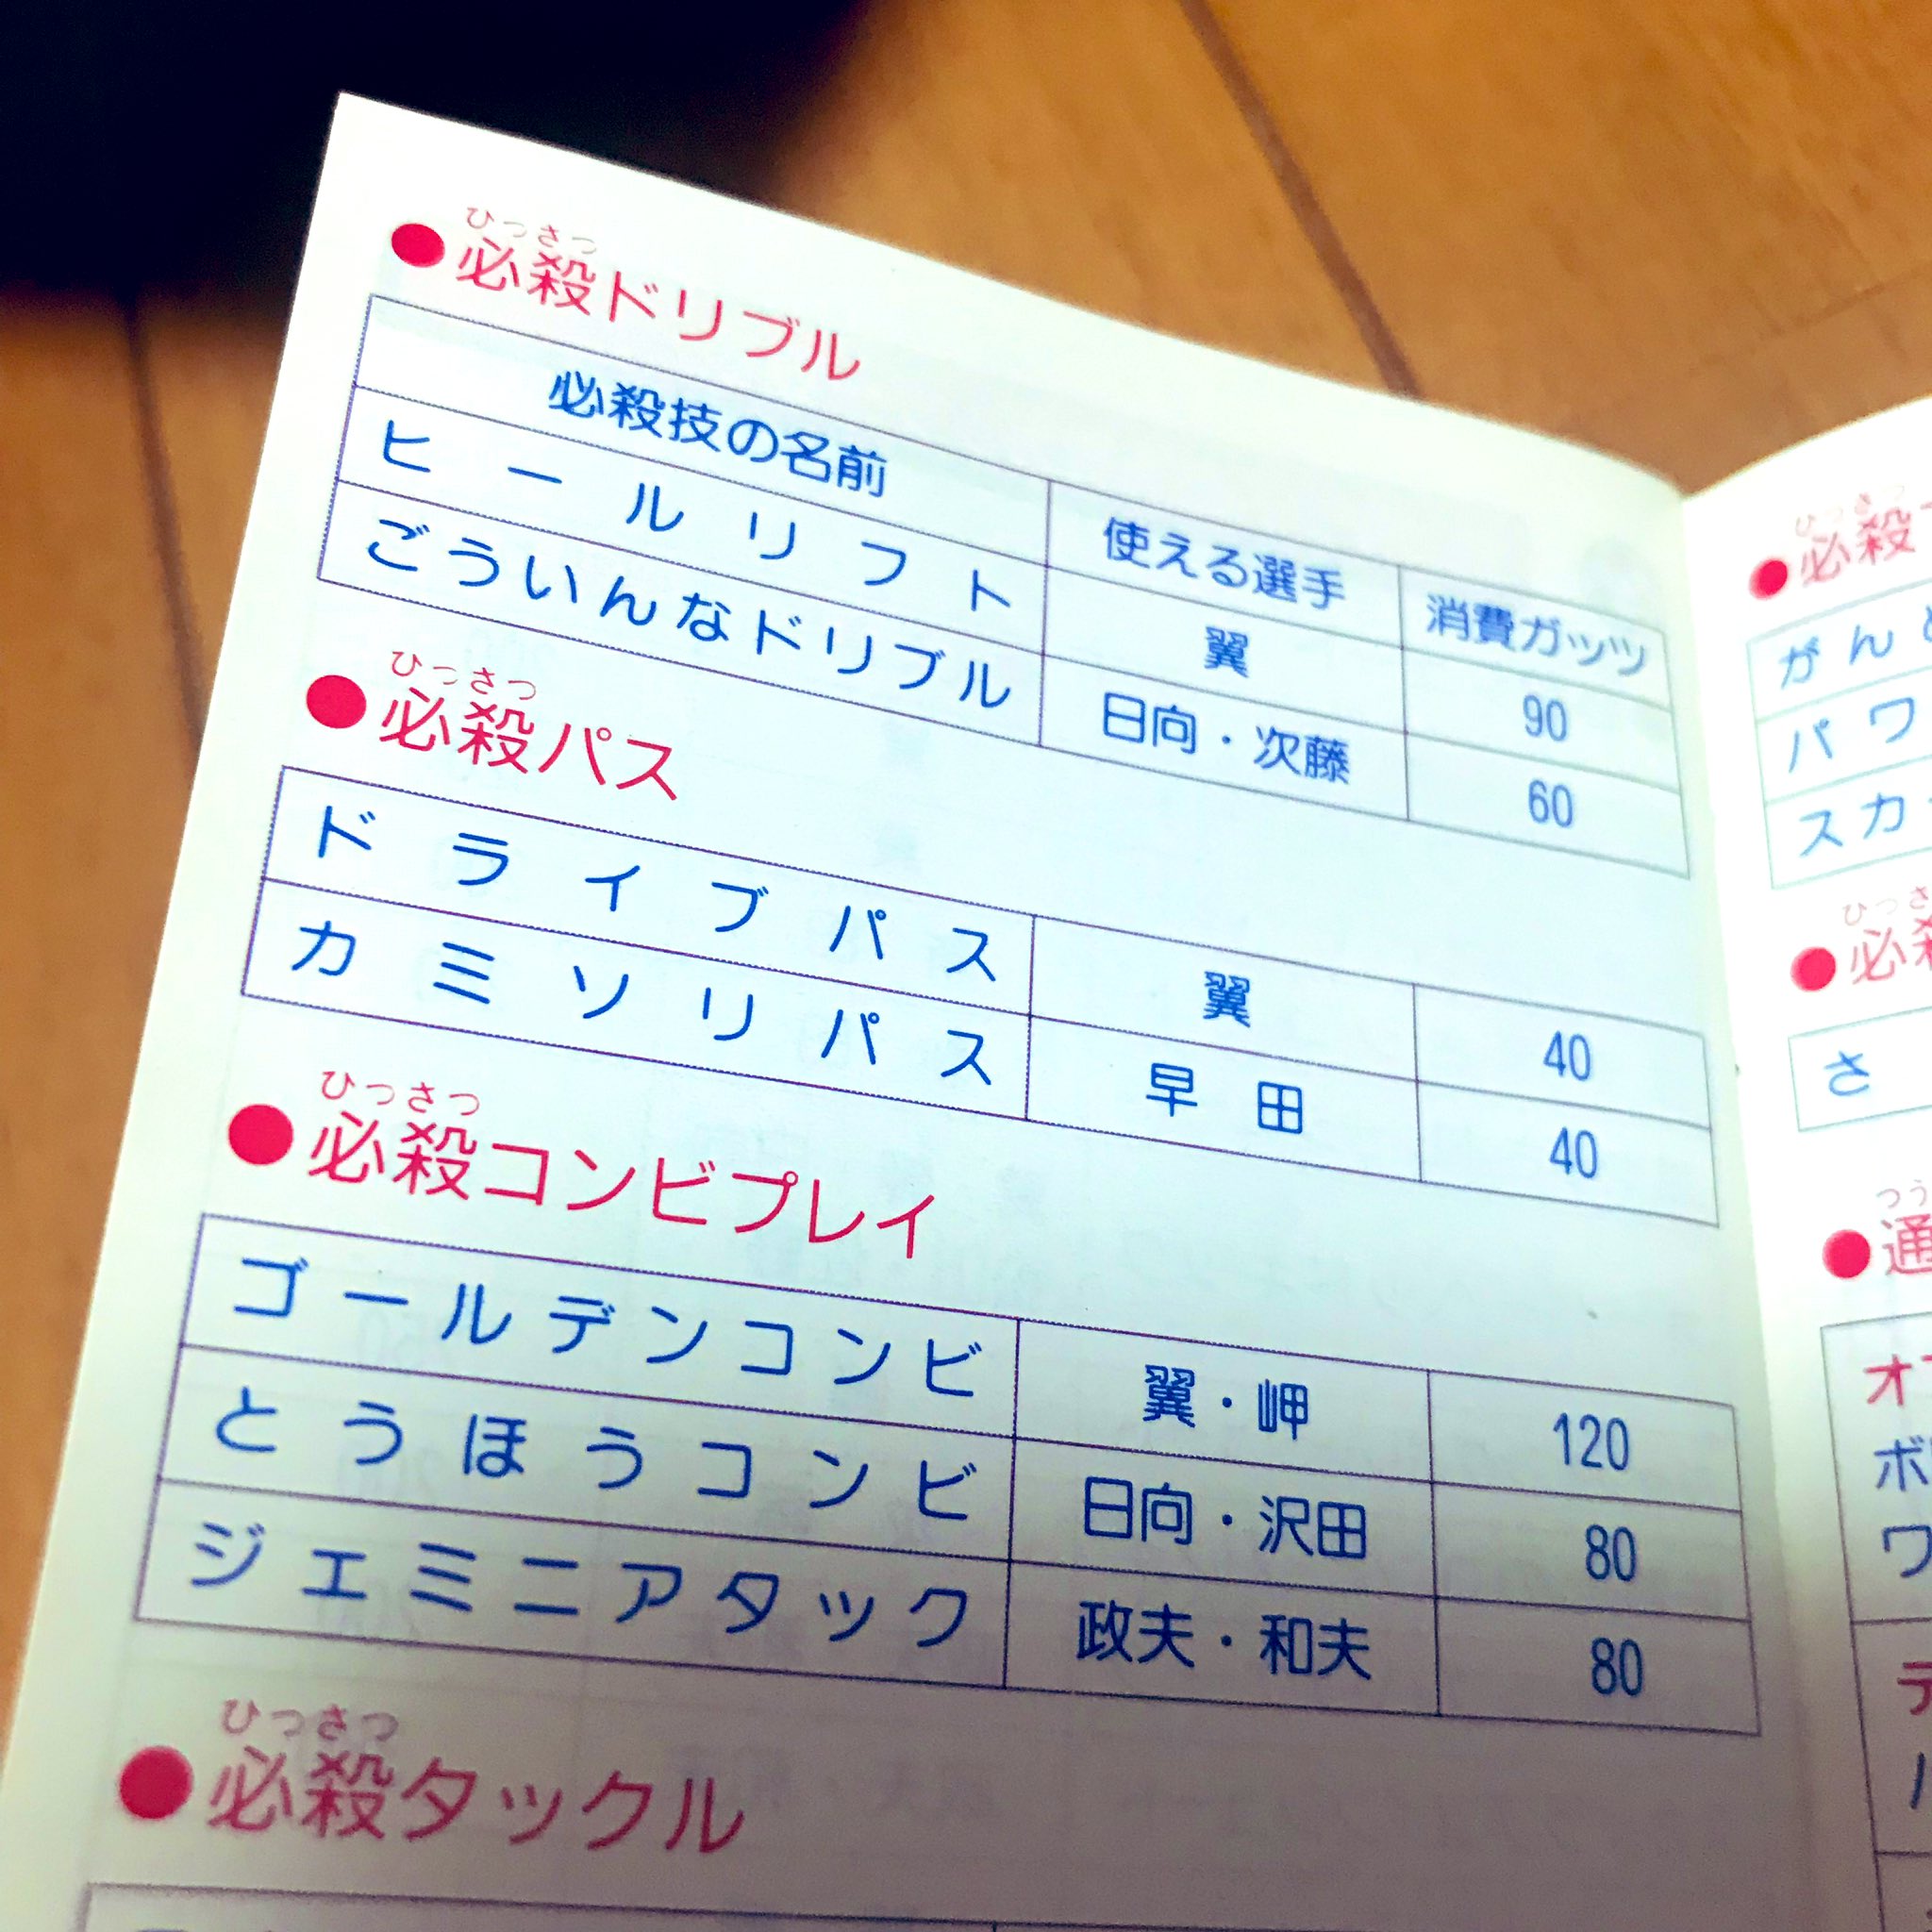 ひっさつ
●必殺ドリブル
必殺技の名前 使える選手 消費ガッツ
ヒールリフト 翼 90
ごういんなドリブル 日向・次藤 60
ひっさつ
●必殺パス
ドライブパス 翼 40
カミソリパス 早田 40
ひっさつ
●必殺コンビプレイ
ゴールデンコンビ 翼・岬 120
とうほうコンビ 日向・沢田 80
ジェミニアタック 政夫・和夫 80
ひっさつ
●必殺タックル
ひっさ
●必殺
がん
パワ
スカ
ひっさ
●必殺
さ
つう
●通
オ
ボ
ワ
デ